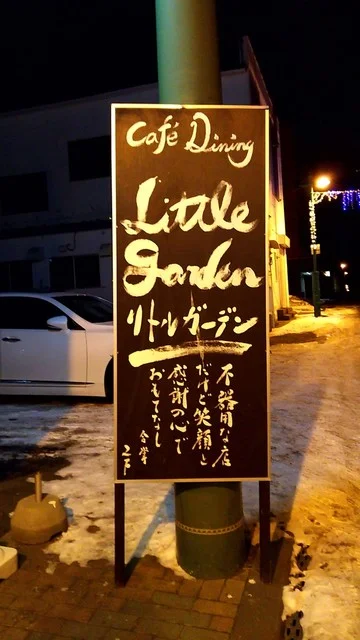 Café Dining
Little
Garden
リトルガーデン
不器用な店
だけど笑顔と
感謝の心で
おもてなし
2F